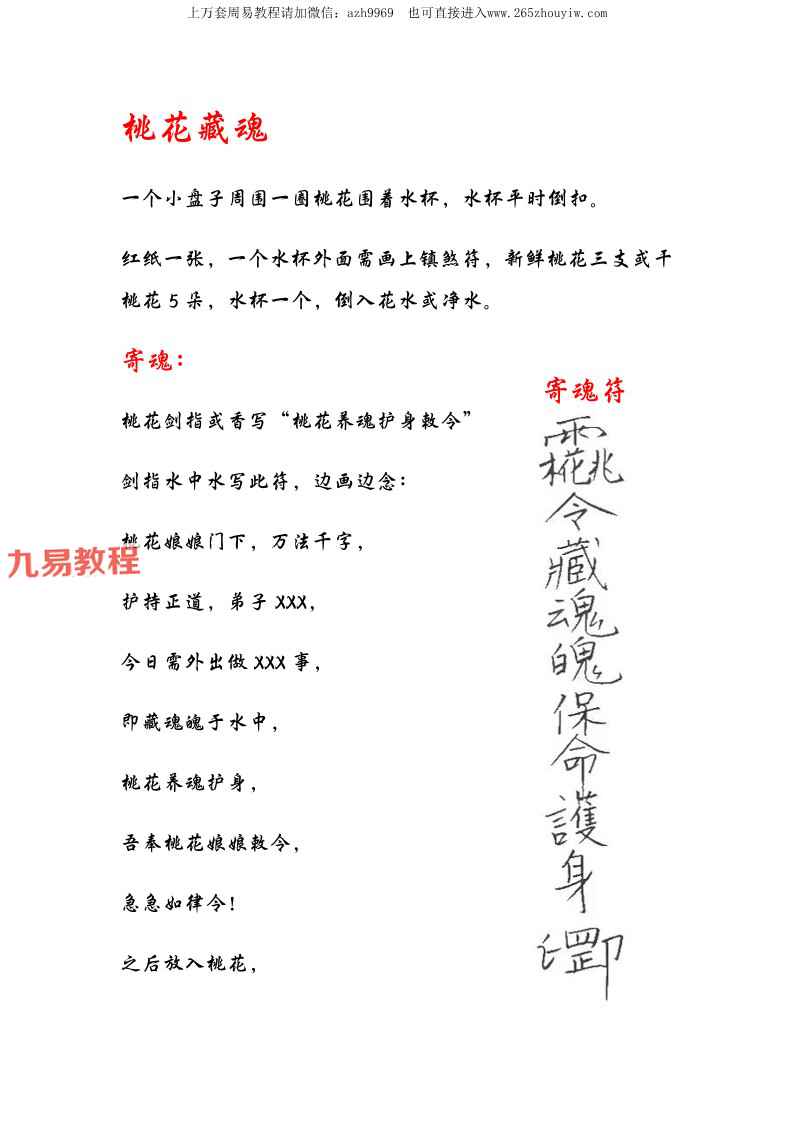 上万套周易教程请加微信：azh9969 也可直接进入www.265zhouyiw.com
桃花藏魂
一个小盘子周围一圈桃花围着水杯，水杯平时倒扣。
红纸一张，一个水杯外面需画上镇煞符，新鲜桃花三支或干
桃花 5 朵，水杯一个，倒入花水或净水。
寄魂：
桃花剑指或香写“桃花养魂护身敕令”
剑指水中水写此符，边画边念：
桃花娘娘门下，万法千字，
九易教程
护持正道，弟子 XXX，
今日需外出做 XXX 事，
即藏魂魄于水中，
桃花养魂护身，
吾奉桃花娘娘敕令，
急急如律令！
之后放入桃花，
寄魂符
令
藏
魂
魄
保
命
護
身